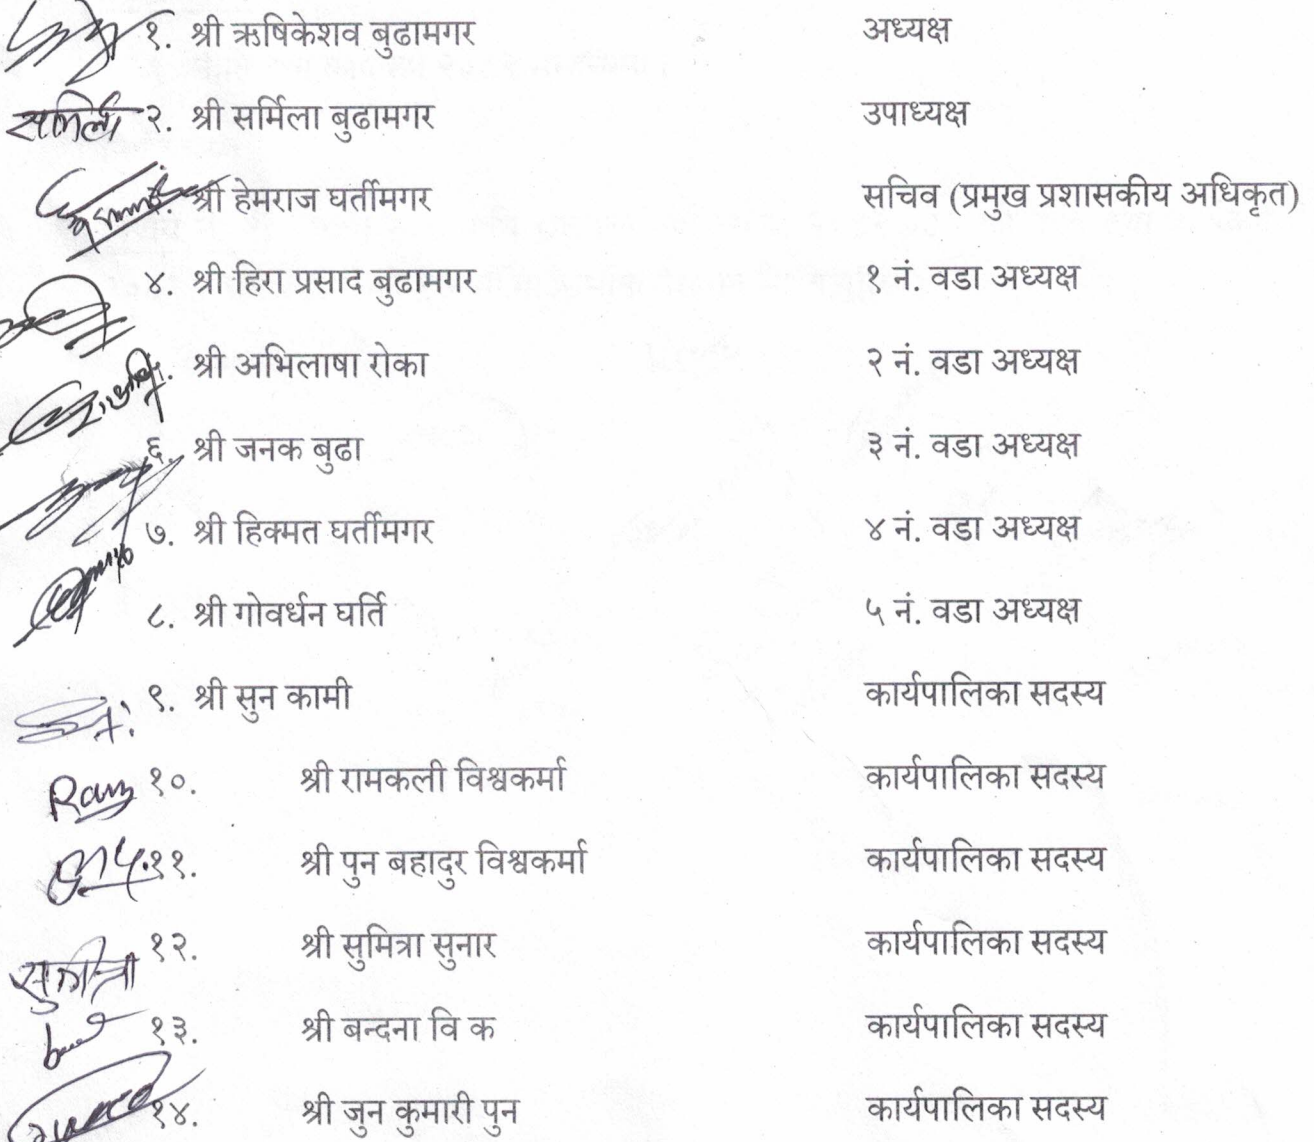 १. श्री ऋषिकेशव बुढामगर अध्यक्ष
सर्मिला २. श्री सर्मिला बुढामगर उपाध्यक्ष
श्री हेमराज घर्तीमगर सचिव (प्रमुख प्रशासकीय अधिकृत)
४. श्री हिरा प्रसाद बुढामगर १ नं. वडा अध्यक्ष
श्री अभिलाषा रोका २ नं. वडा अध्यक्ष
६. श्री जनक बुढा ३ नं. वडा अध्यक्ष
७. श्री हिक्मत घर्तीमगर ४ नं. वडा अध्यक्ष
८. श्री गोवर्धन घर्ति ५ नं. वडा अध्यक्ष
९. श्री सुन कामी कार्यपालिका सदस्य
Ram १०. श्री रामकली विश्वकर्मा कार्यपालिका सदस्य
११. श्री पुन बहादुर विश्वकर्मा कार्यपालिका सदस्य
१२. श्री सुमित्रा सुनार कार्यपालिका सदस्य
१३. श्री बन्दना वि क कार्यपालिका सदस्य
१४. श्री जुन कुमारी पुन कार्यपालिका सदस्य